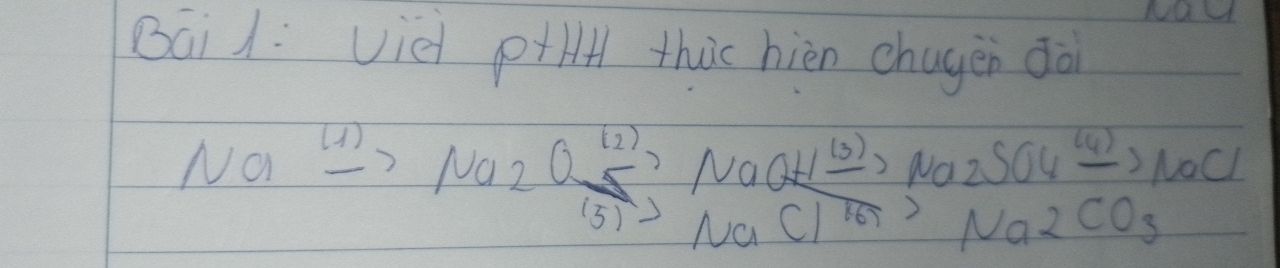 NaCl
Bài 1: Viết ptHH thực hiện chuyển đổi
Na (1)→ Na2O (2)→ NaOH (3)→ Na2SO4 (4)→ NaCl
(5)→ NaCl (6)→ Na2CO3